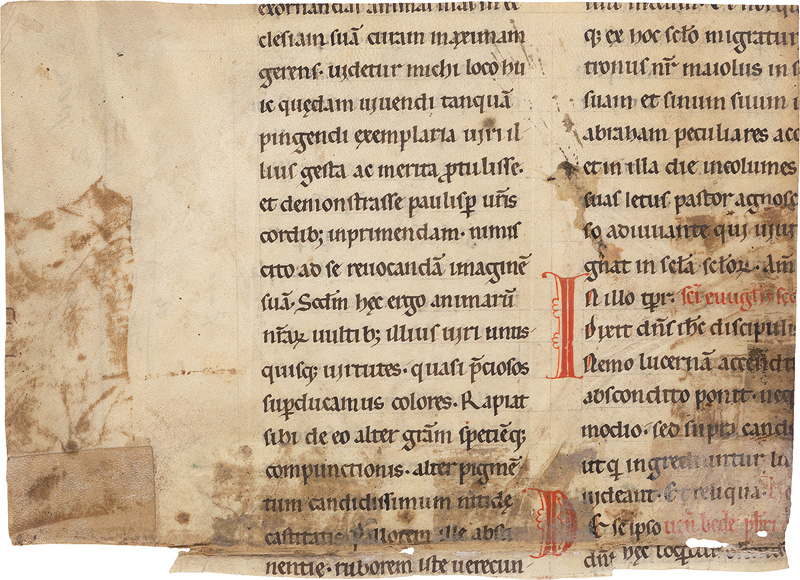 exornandai animai
clesiam suā curam maximam
gerens. uidetur michi loco hu
ic quędam uiuendi tanquā
pingendi exemplaria uiri il
lius gesta ac merita ꝓtulisse.
et demonstrasse paulisꝑ ur̄is
cordib; inprimendam. nimis
cito ad se reuocandā imaginē
suā. Scdm̄ hęc ergo animarū
nr̄arꝝ uultib; illius uiri unus
quisq; uirtutes. quasi p̄ciosos
suꝑducamus colores. Rapiat
sibi de eo alter grām speciēq;
compunctionis. alter pigmē
tum candidissimum nitidę
castitatis pallorem ille absti
nentię. ruborem iste uerecun
q; ex hoc sc̄lo migratur
tronus nr̄ maiolus in s
suam et sinum suum
abraham peculiares acc
et in illa die incolumes
suas letus pastor agnosc
so adiuuante qui uiuit
gnat in scl̄a scl̄orꝝ. Am̄
In illo tp̄r. sc̄i euuḡlii sec
Dixit dn̄s ih̄c discipulis
Nemo lucernā accendit
abscondito ponit. neq
modio. sed supra cande
ut qi ingrediuntur lu
uideant. Et reliqua.
DE se ipso uen̄ bede pb̄ri
dn̄s hęc loq̄tur